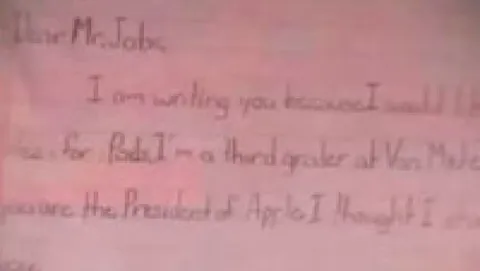 Dear Mr. Jobs,
I am writing you because I would
for iPods. I'm a third grader at Van
you are the President of Apple I thought I